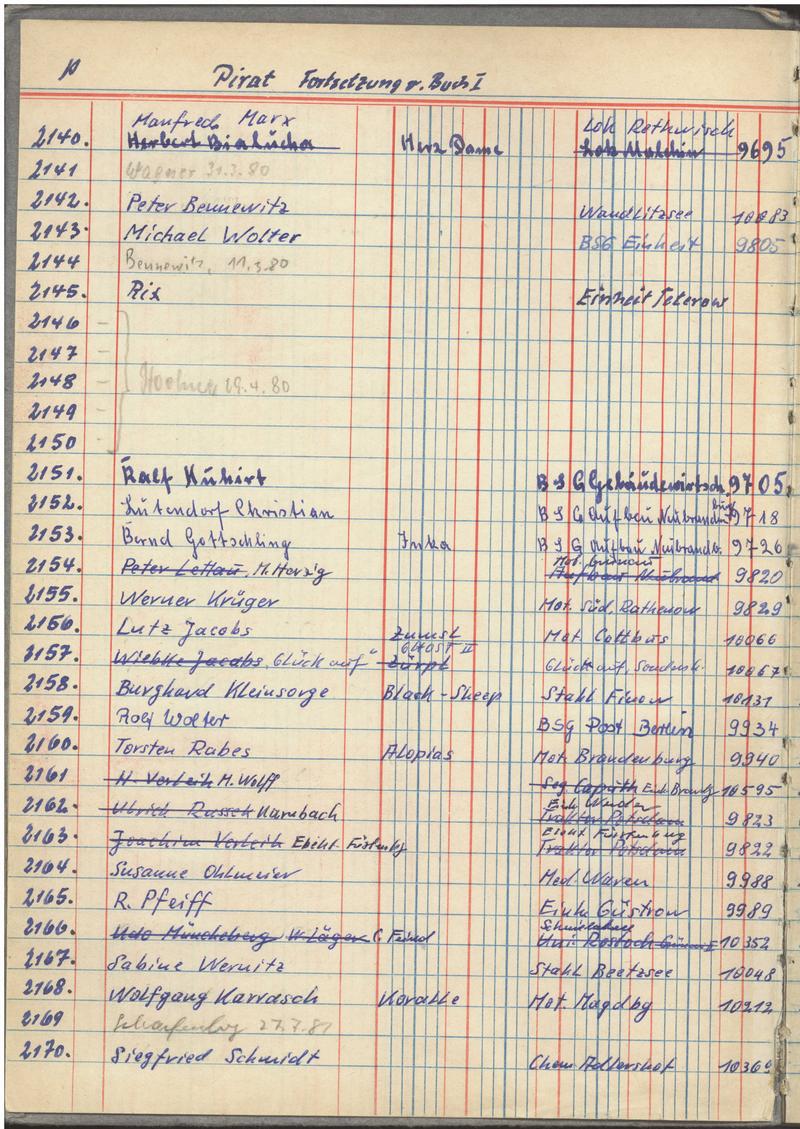 P Pirat Fortsetzung v. Buch I
Manfred Marx Lok Rethwisch
2140. Herbert Bialucha Herz Dame Lok Malchin 9695
2141 Wagner 31.3.80
2142. Peter Bennewitz Wandlitzsee 10083
2143. Michael Wolter BSG Einheit 9805
2144 Bennewitz, 11.3.80
2145. Rix Einheit Teterow
2146 –
2147 –
2148 – 29.4.80
2149 –
2150 –
2151. Ralf Kuhirt BSG Gebäudewirtsch. 9705.
2152. Lütendorf Christian BSG Aufbau Neubrandenburg 9718
2153. Bernd Gottschling Inka BSG Aufbau Neubrandb. 9726
Mot.
2154. Peter Lettau, M. Herzig Aufbau Neubrand 9820
2155. Werner Krüger Mot. Süd. Rathenow 9829
2156. Lutz Jacobs Mot Cottbus 10066
II
2157. Wiebke Jacobs "Glück auf" Glück auf, 10067
2158. Burghard Kleinsorge Black-Sheep Stahl Finow 10131
2159. Rolf Wolter BSG Post Berlin 9934
2160. Torsten Rabes Alopias Mot. Brandenburg 9940
2161 H. Verleih M. Wolff Seg. Caputh Einh. Brandbg 10595
Einh. Werder
2162. Ulrich Russek Karnbach Traktor Potsdam 9823
Einht Fürstenbg
2163. Joachim Verleih Ehiht Fürstenbg Traktor Potsdam 9822
2164. Susanne Ohlmeier Med. Waren 9988
2165. R. Pfeiff Einh. Güstrow 9989
2166. Udo Müncheberg W. Jäger C. Feind Uni Rostock 10352
2167. Sabine Wernitz Stahl Beetzsee 10048
2168. Wolfgang Karrasch Koralle Mot. Magdbg 10212
2169 Scharfenberg 27.7.81
2170. Siegfried Schmidt Chem. Adlershof 10369